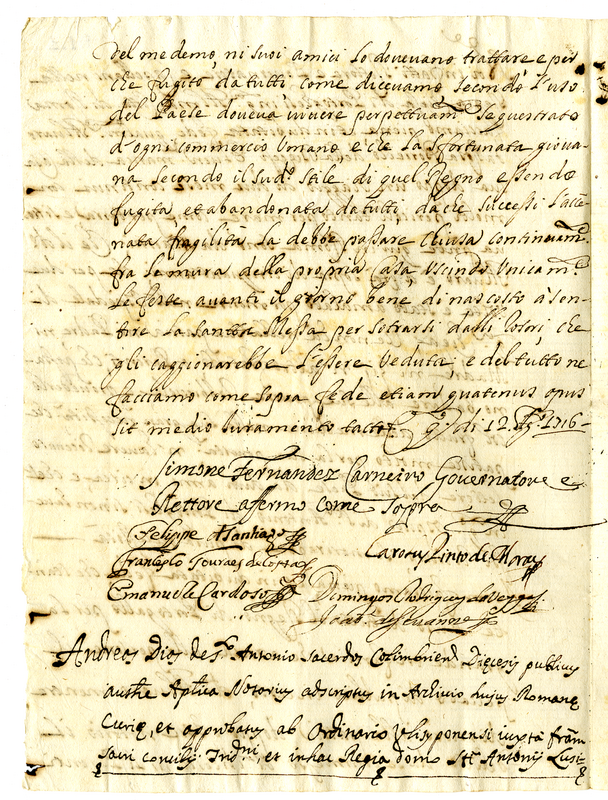 del medemo, ni suoi amici lo dovevano trattare e per
che fugito da tutti, come dicevamo secondo l'uso
del Paese doveva vivere perpetuam.e sequestrato
d'ogni commercio Umano, e che la sfortunata giova-
na secondo il sud.o stile di quel Regno essendo
fugita et abandonata da tutti, da che successe l'acce-
nata fragilità la debbe passare chiusa continuam.e
fra le mura della propria Casa, Uscindo Unicam.e
le feste avanti il giorno bene di nascosto à sen-
tire la santa Messa per sotrarsi dalli, che
gli caggionarebbe l'essere veduta, e del tutto ne
facciamo come sopra fede etiam quatenus opus
sit medio Iuramento tacto di 12 1716
Simone Fernandez Carneiro Governatore e
Rettore affermo come sopra
Felippe
Carolus Pinto de Moraes
Emanuele Cardoso
Domingos Rodrigues
Andreas Dias de S.to Antonio Sacerdos Colimbrien Diecesis publicus
auth.e Ap.lica Notarius adscriptus in Archivio Romanę
Curię, et approbatus ab Ordinario Ulisyponensi iuxta
sacri Concilij Trid.ni, et in hac Regia domo S.ti Antonij